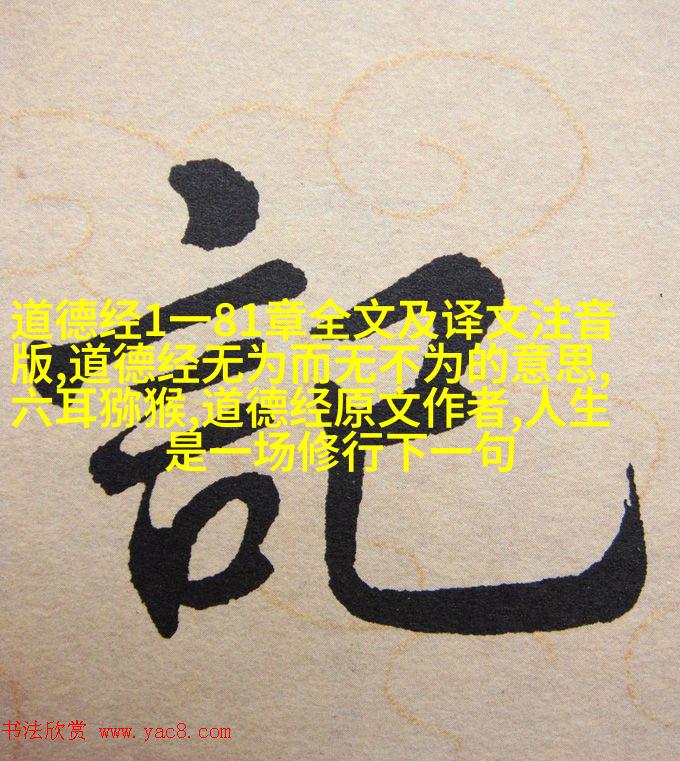 記
道德经1一81章全文及译文注音
版,道德经无为而无不为的意思,
六耳猕猴,道德经原文作者,人生
是一场修行下一句
书法欣赏 www.yac8.com